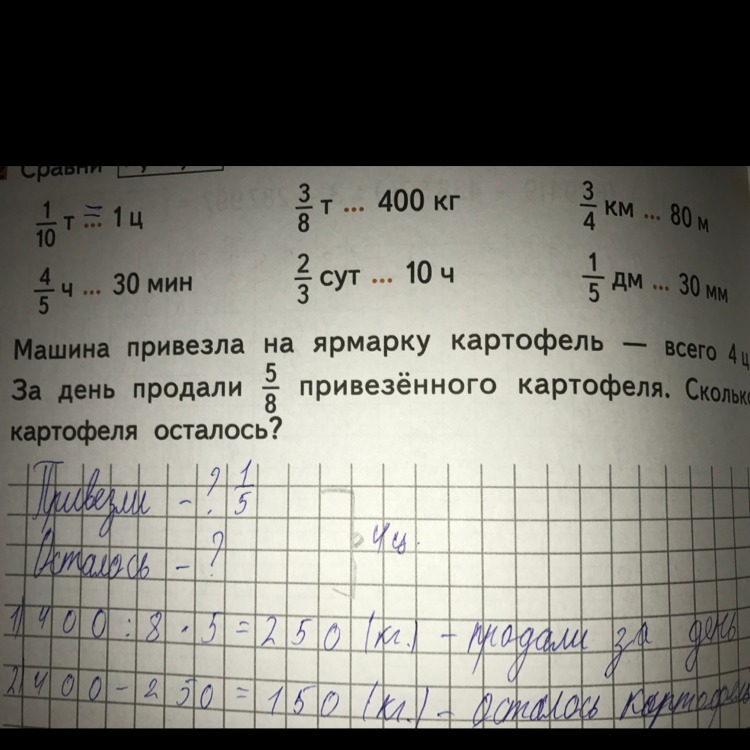 Сравни
1/10 т = ... 1 ц 3/8 т ... 400 кг 3/4 км ... 80 м
4/5 ч ... 30 мин 2/3 сут ... 10 ч 1/5 дм ... 30 мм
Машина привезла на ярмарку картофель — всего 4 ц
За день продали 5/8 привезённого картофеля. Сколько
картофеля осталось?
Привезли - ? 1/5
Осталось - ? 4 ц.
1) 400 : 8 · 5 = 250 (кг.) - продали за день
2) 400 - 250 = 150 (кг.) - осталось картофель